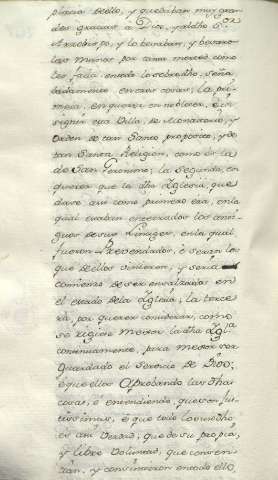 placia dello, y quedaban muy gran
des gracias a Dios, y aldho Sor
Arzobispo, y lo besaban, y besaron
las manos por tanta merced como
les facia en todo lo sobredho, seña
ladamente en tres cosas; la pri
mera, en querer ennoblecer, è in
signir esta Villa de Monasterio, y
Orden de tan Santo proposito, y de
tan Santa Religion, como es la
de San Geronimo; la segunda, en
querer que la dha Iglesia, que
dase asi como primero era, en la
qual estaban enterrados los anti
guos de sus Linages, en la qual
fueron Prevendados, è serian los
que dellos viniesen, y seria
comienzo de ser ensalzados en
el estado de la Iglesia; la terce
ra, por querer considerar, como
se rigiese mejor la dha Iglia
continuamente, para mejor ser
guardado el servicio de Dios;
è que ellos Aprobando las dhas
cosas, è entendiendo, que son jus
tissimas, è que todo lo susodho
es asi Verdad, que de su propia,
y libre Voluntad, que consen
tian, y consintieron en todo ello,